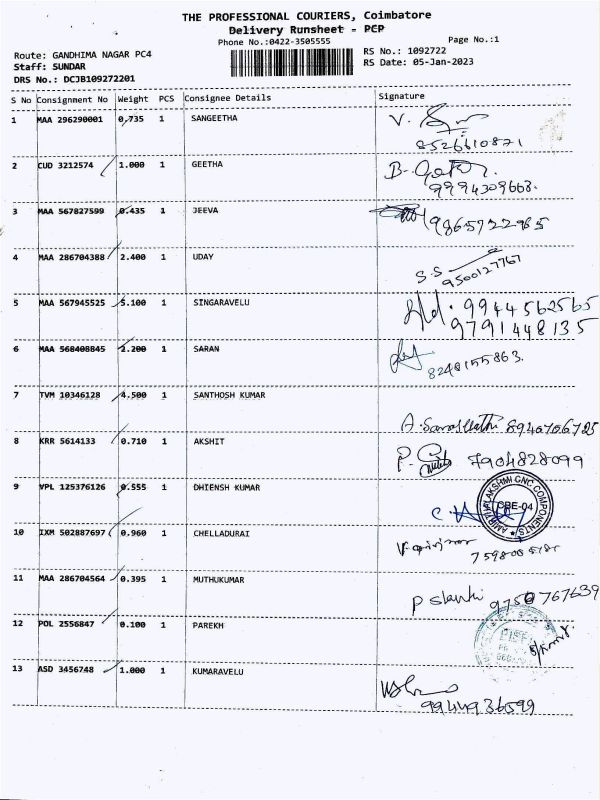 THE PROFESSIONAL COURIERS, Coimbatore
Delivery Runsheet - PCP
Phone No.:0422-3505555
Page No.:1
Route: GANDHIMA NAGAR PC4
RS No.: 1092722
Staff: SUNDAR
RS Date: 05-Jan-2023
DRS No.: DCJB109272201
S No Consignment No Weight PCS Consignee Details Signature
1 MAA 296290001 0.735 1 SANGEETHA V.
8526610871
2 CUD 3212574 1.000 1 GEETHA B-
9994309668.
3 MAA 567827599 0.435 1 JEEVA
9865722965
4 MAA 286704388 2.400 1 UDAY
S.S 9500127767
5 MAA 567945525 5.100 1 SINGARAVELU 9944562565
9791448135
6 MAA 568408845 2.200 1 SARAN
8240155863.
7 TVM 10346128 4.500 1 SANTHOSH KUMAR
8940706725
8 KRR 5614133 0.710 1 AKSHIT P. 7904828099
9 VPL 125376126 0.555 1 DHIENSH KUMAR
C. LAKSHMI CNC COMPONENTS CBE-04
10 IXM 502887697 0.960 1 CHELLADURAI
11 MAA 286704564 0.395 1 MUTHUKUMAR
P 9750767639
12 POL 2556847 0.100 1 PAREKH
13 ASD 3456748 1.000 1 KUMARAVELU
9944936599